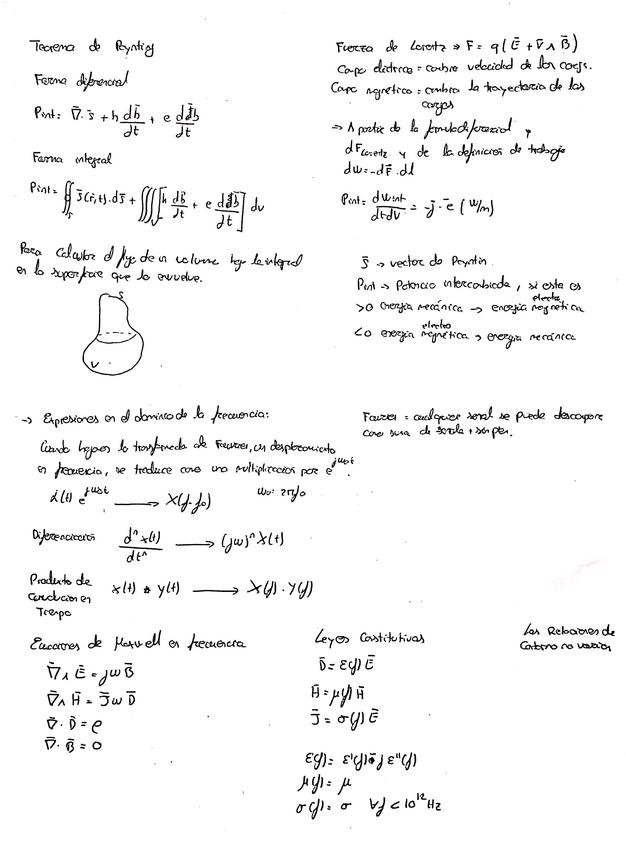 Teorema de Poynting
Forma diferencial
Pint = ∇̄·s̄ + h db̄/dt + e dd̄/dt
Forma integral
Pint = ∯ s̄(r̄,t)·ds̄ + ∭ [h db̄/dt + e dd̄/dt] dv
Para calcular el flujo de un volumen hago la integral
en la superficie que lo envuelve.
S
V
Fuerza de Lorentz ⇒ F = q(Ē + v̄ ∧ B̄)
Campo eléctrico = cambio velocidad de las cargas.
Campo magnético = cambio la trayectoria de las
cargas
→ A partir de la formula diferencial y
dFLorentz y de la definición de trabajo
dw = -dF̄·dl
Pint = dwint/dtdv = -j̄·ē (W/m)
s̄ → vector de Poyntin
Pint → Potencia intercambiada, si esta es
>0 energía mecánica → energía electromagnética
<0 energía electromagnética → energía mecánica
→ Expresiones en el dominio de la frecuencia:
Cuando hagamos la transformada de Fourier, un desplazamiento
en frecuencia, se traduce como una multiplicación por e^jω₀t
x(t) e^jω₀t → X(f-f₀) ω₀ = 2πf₀
Fourier = cualquier señal se puede descomponer
como suma de
Diferenciación d^n x(t)/dt^n → (jω)^n X(t)
Producto de
convolución en
Tiempo
x(t) * y(t) → X(f)·Y(f)
Ecuaciones de Maxwell en frecuencia
∇̄ ∧ Ē = jω B̄
∇̄ ∧ H̄ = J̄ω D̄
∇̄·D̄ = ρ
∇̄·B̄ = 0
Leyes Constitutivas
D̄ = ε(f) Ē
H̄ = μ(f) H̄
J̄ = σ(f) Ē
ε(f) = ε'(f) j ε''(f)
μ(f) = μ
σ(f) = σ ∀f < 10^12 Hz
Las Relaciones de
Contorno no varían